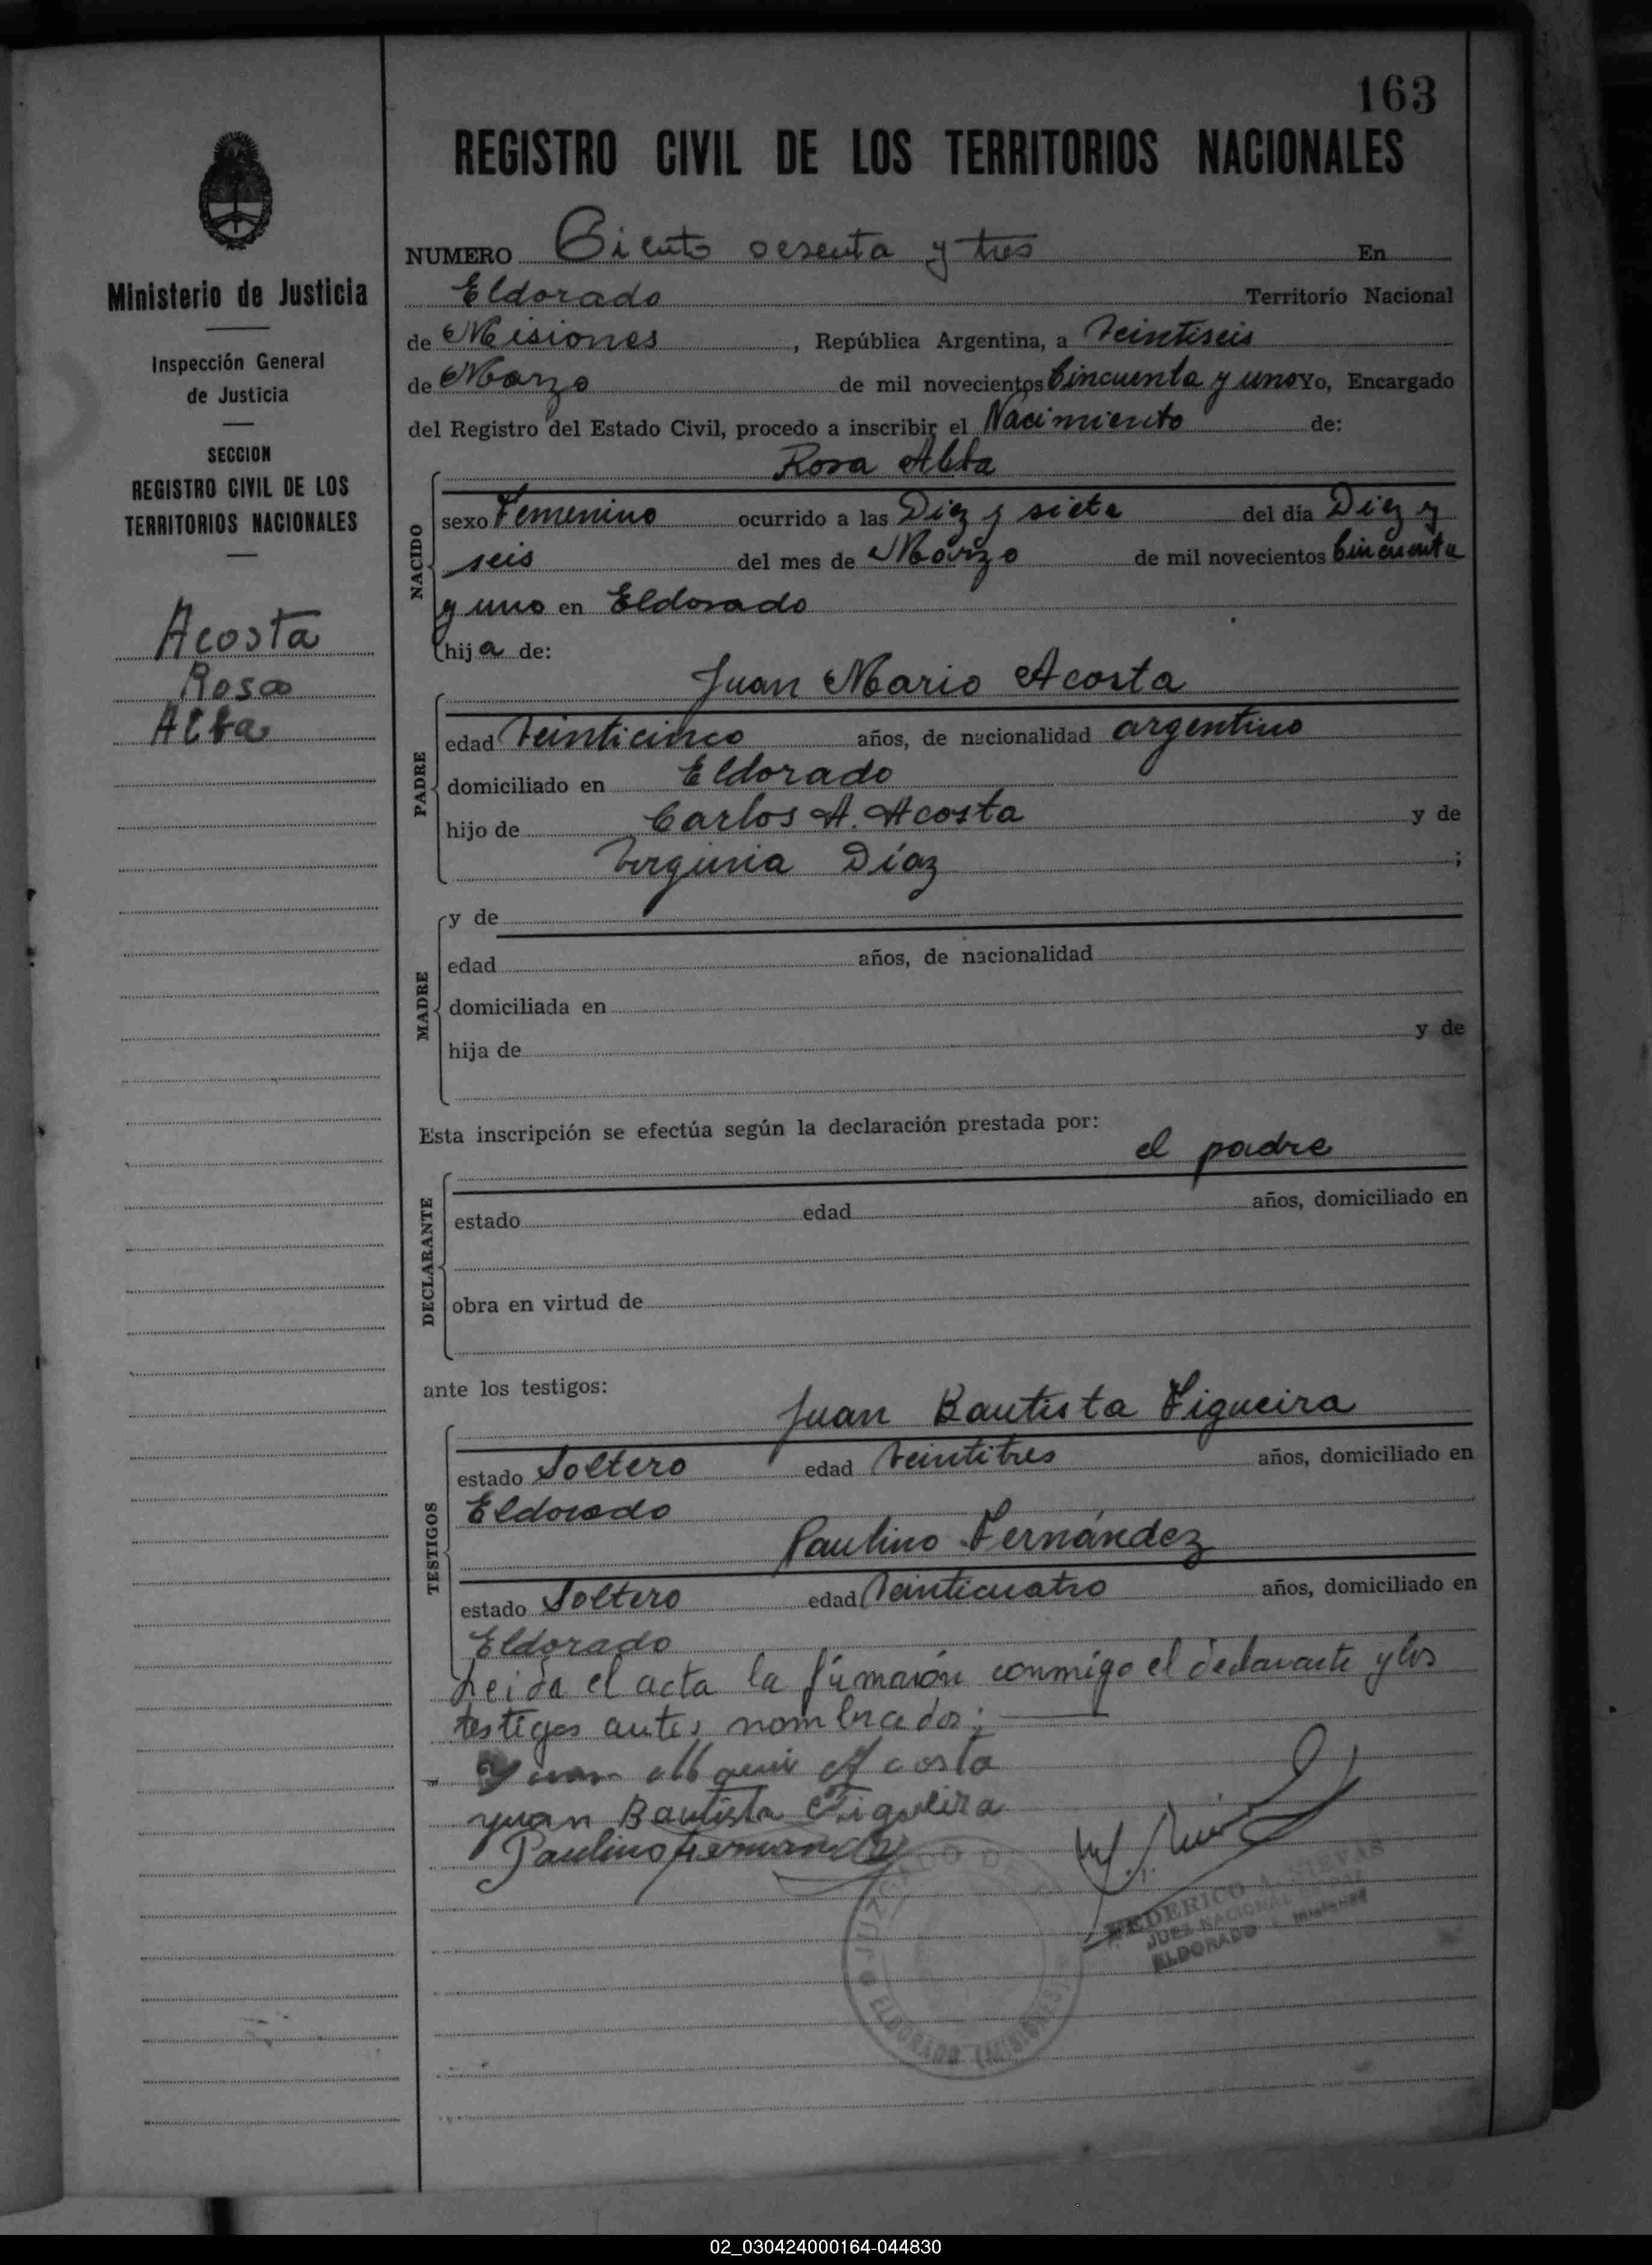 163
REGISTRO CIVIL DE LOS TERRITORIOS NACIONALES
Ministerio de Justicia
Inspección General
de Justicia
SECCION
REGISTRO CIVIL DE LOS
TERRITORIOS NACIONALES
Acosta
Rosa
Alba
NUMERO Ciento sesenta y tres En
Eldorado Territorio Nacional
de Misiones, República Argentina, a Veintiseis
de Marzo de mil novecientos Cincuenta y uno Yo, Encargado
del Registro del Estado Civil, procedo a inscribir el Nacimiento de:
NACIDO
Rosa Alba
sexo Femenino ocurrido a las Diez y siete del día Diez y
seis del mes de Marzo de mil novecientos Cincuenta
y uno en Eldorado
hija de:
PADRE
Juan Mario Acosta
edad Veinticinco años, de nacionalidad argentino
domiciliado en Eldorado
hijo de Carlos A. Acosta y de
Virginia Díaz ;
MADRE
y de
edad años, de nacionalidad
domiciliada en
hija de y de
Esta inscripción se efectúa según la declaración prestada por:
el padre
DECLARANTE
estado edad años, domiciliado en
obra en virtud de
ante los testigos:
TESTIGOS
Juan Bautista Figueira
estado Soltero edad Veintitres años, domiciliado en
Eldorado
Paulino Fernández
estado Soltero edad Veinticuatro años, domiciliado en
Eldorado
Leida el acta la firmaron conmigo el declarante y los
testigos antes nombrados;
Juan Acosta
Juan Bautista Figueira
Paulino Fernandez
JUZGADO DE
ELDORADO (MISIONES)
FEDERICO A. NIEVAS
JUEZ NACIONAL DE PAZ
ELDORADO - Misiones
02_030424000164-044830